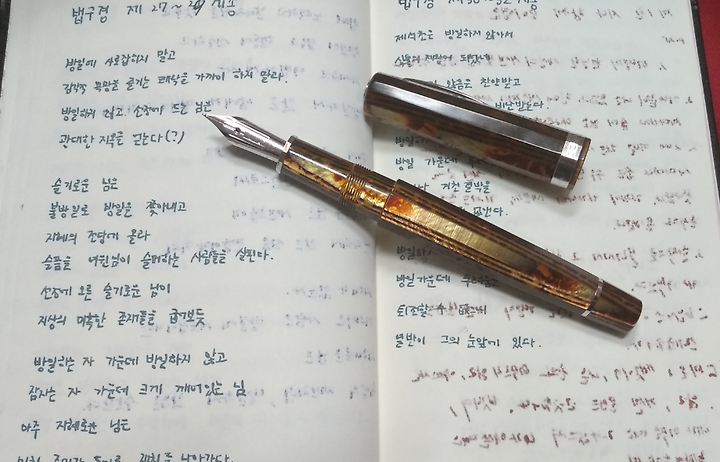 법구경 제 27~29 게송
방일에 사로잡히지 말고
감각적 욕망을 즐기는 쾌락을 가까이 하지 말라.
방일하지 않고 선정에 드는 님은
관대한 지복을 얻는다(?)
슬기로운 님은
불방일로 방일을 쫓아내고
지혜의 조당에 올라
슬픔을 여읜님이 슬퍼하는 사람들을 살핀다.
산정에 오른 슬기로운 님이
지상의 미혹한 존재들을 굽어보듯
방일하는 자 가운데 방일하지 않고
잠자는 자 가운데 크게 깨어있는 님
아주 지혜로운 님은
나아가다.
법구경 제 30~32 게송
제석천은 방일하지 않아서
신들의 제왕이 되었네
않음은 찬양받고
비난받는다.
방일
방일 가운데
거친 결박을
방일
방일 가운데 두려움
퇴조할 수 없으니
열반이 그의 눈앞에 있다.